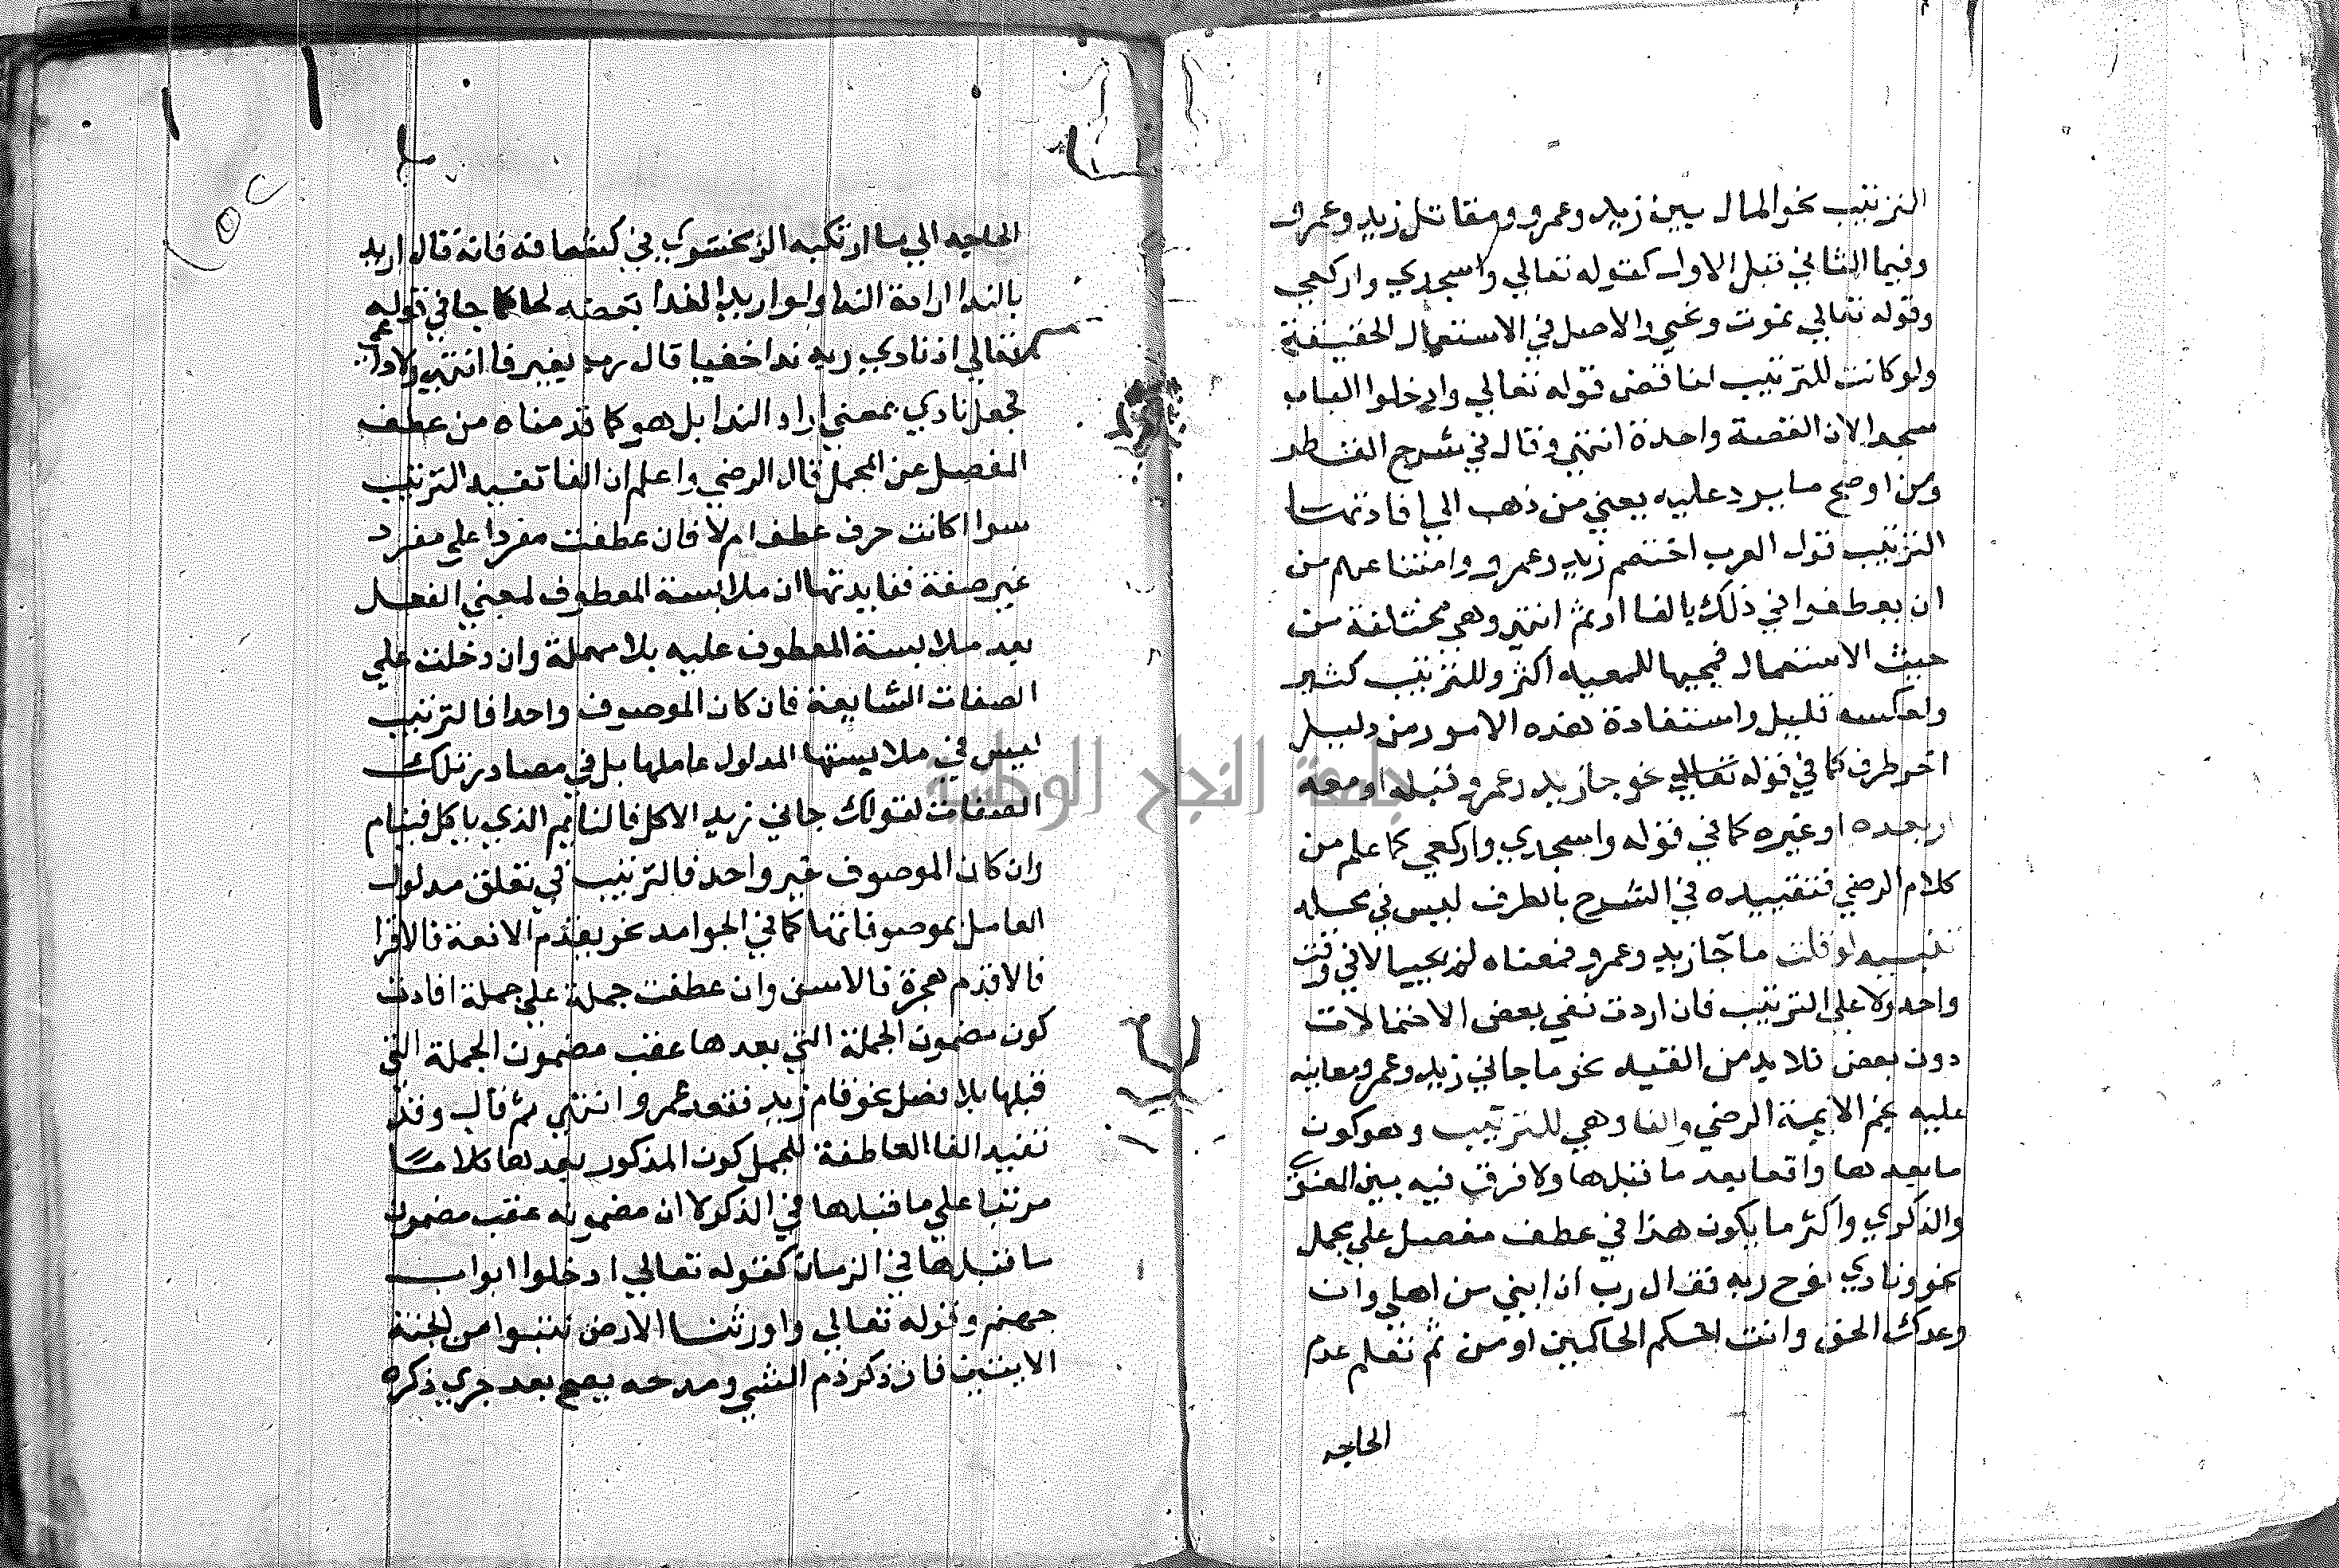 الترتيب نحو المال بين زيد وعمرو ومقاتل زيد وعمرو
وفيما الثاني قبل الاول كقوله تعالي واسجدي واركعي
وقوله تعالي نموت ونحيي والاصل في الاستعمال الحقيقة
ولو كانت للترتيب لناقض قوله تعالي وادخلوا الباب
سجدا لان القصة واحدة انتهي وقال في شرح القطر
ومن اوضح ما يرد عليه يعني من ذهب الي افادتها
الترتيب قول العرب اختصم زيد وعمرو وامتناعهم من
ان يعطفوا في ذلك بالفا او بثم انتهي وهي مختلفة من
حيث الاستعمال فمجيها للمعيه اكثر وللترتيب كثير
ولعكسه قليل واستفادة هذه الامور من دليل
اخر طرف كما في قوله تعالي نحو جا زيد وعمرو قبله او معه
او بعده او غيره كما في قوله واسجدي واركعي كما علم من
كلام الرضي فتقييده في الشرح بالطرف ليس في محله
تنبيه لو قلت ما جا زيد وعمرو فمعناه لم يجييا لا في وقت
واحد ولا علي الترتيب فان اردت نفي بعض الاحتمالات
دون بعض فلا بد من القيد نحو ما جاني زيد وعمرو معا نبه
عليه نجم الايمة الرضي والفا وهي للترتيب وهو كون
ما بعدها واقعا بعد ما قبلها ولا فرق فيه بين
والذكري واكثر ما يكون هذا في عطف مفصل علي مجمل
نحو ونادي نوح ربه فقال رب ان ابني من اهلي وان
وعدك الحق وانت احكم الحاكمين او من ثم تعلم عدم
الحاجه
الحاجه الي ما ارتكبه الزمخشري في كشفا فه فانه قال اريد
بالندا ارادة الندا ولو اريد الندا نفسه لجا كما جا في قوله
تعالي اذ نادي ربه ندا خفيا قال رب بغير فا انتهي ولا داعي
لجعل نادي بمعني اراد الندا بل هو كما قدمناه من عطف
المفصل عن المجمل قال الرضي واعلم ان الفا تفيد الترتيب
سوا كانت حرف عطف ام لا فان عطفت مفردا علي مفرد
غير صفة ففايدتها ان ملابسة المعطوف لمعني الفعل
بعد ملابسة المعطوف عليه بلا مهملة وان دخلت علي
الصفات الشايعة فان كان الموصوف واحدا فالترتيب
ليس في ملابستها المدلول عاملها بل في مصادر تلك
الصفات لقولك جاني زيد الاكل فالنايم الذي ياكل فينام
وان كان الموصوف غير واحد فالترتيب في تعلق مدلول
العامل بموصوفاتها كما في الجوامد نحو يقدم الاقعة فالاقرا
فالاقدم هجرة فالاسن وان عطفت جملة علي جملة افادت
كون مضمون الجملة التي بعدها عقب مضمون الجملة التي
قبلها بلا فصل نحو قام زيد فقعد عمرو انتهي ثم قال وقد
تفيد الفا العاطفة للجمل كون المذكور بعدها كلاما
مرتبا علي ما قبلها في الذكر لا ان مضمونه عقب مضمون
ما قبلها في الزمان كقوله تعالي ادخلوا ابواب
جهنم وقوله تعالي واورثنا الارض نتبوا من الجنة
الايتين فان ذكر ذم الشي ومدحه يصح بعد جري ذكره
جامعة النجاح الوطنية